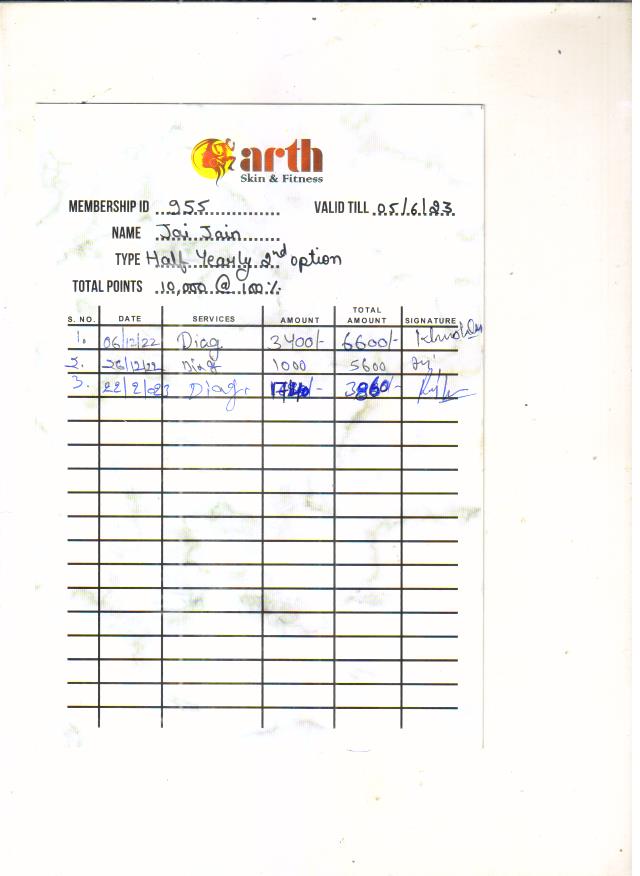 arth
Skin & Fitness
MEMBERSHIP ID 955 VALID TILL 05/6/23
NAME Jai Jain
TYPE Half Yearly 2nd option
TOTAL POINTS 10,000 @ 100%
S. NO. DATE SERVICES AMOUNT TOTAL AMOUNT SIGNATURE
1. 06/12/22 Diag 3400/- 6600/-
2. 26/12/22 Diag 1000 5600
3. 22/2/23 Diag.